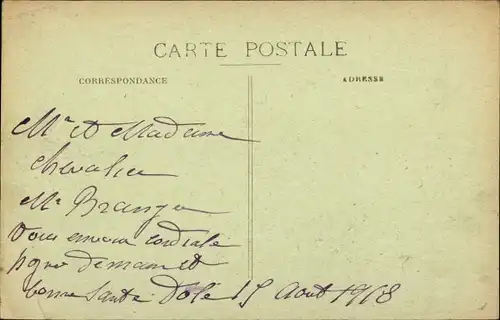 CARTE POSTALE
CORRESPONDANCE
ADRESSE
Mr et Madame
Chevalier
Mr Branger
Vous envoie cordiale
pogné de main et
bonne Santé Dole 15 Août 1918